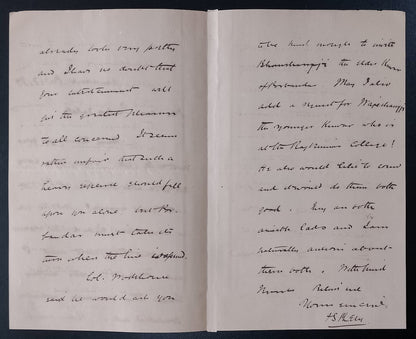 already looks very pretty
and I have no doubt that
your entertainment will
give the greatest pleasure
to all concerned. It seems
rather unfair that such a
heavy expense should fall
upon you alone, but Por-
bandar must take its
turn when the line is opened.
Col. Wodehouse
said he would ask you
to be kind enough to invite
Bhousinhji the elder Kumar
of Porbandar. May I also
add a request for
the younger Kumar who is
at the Rajkumar College?
He also would like to come
and it would do them both
good. They are both
amiable lads and I am
naturally anxious about
them both. With kind
Believe me
Yours sincerely